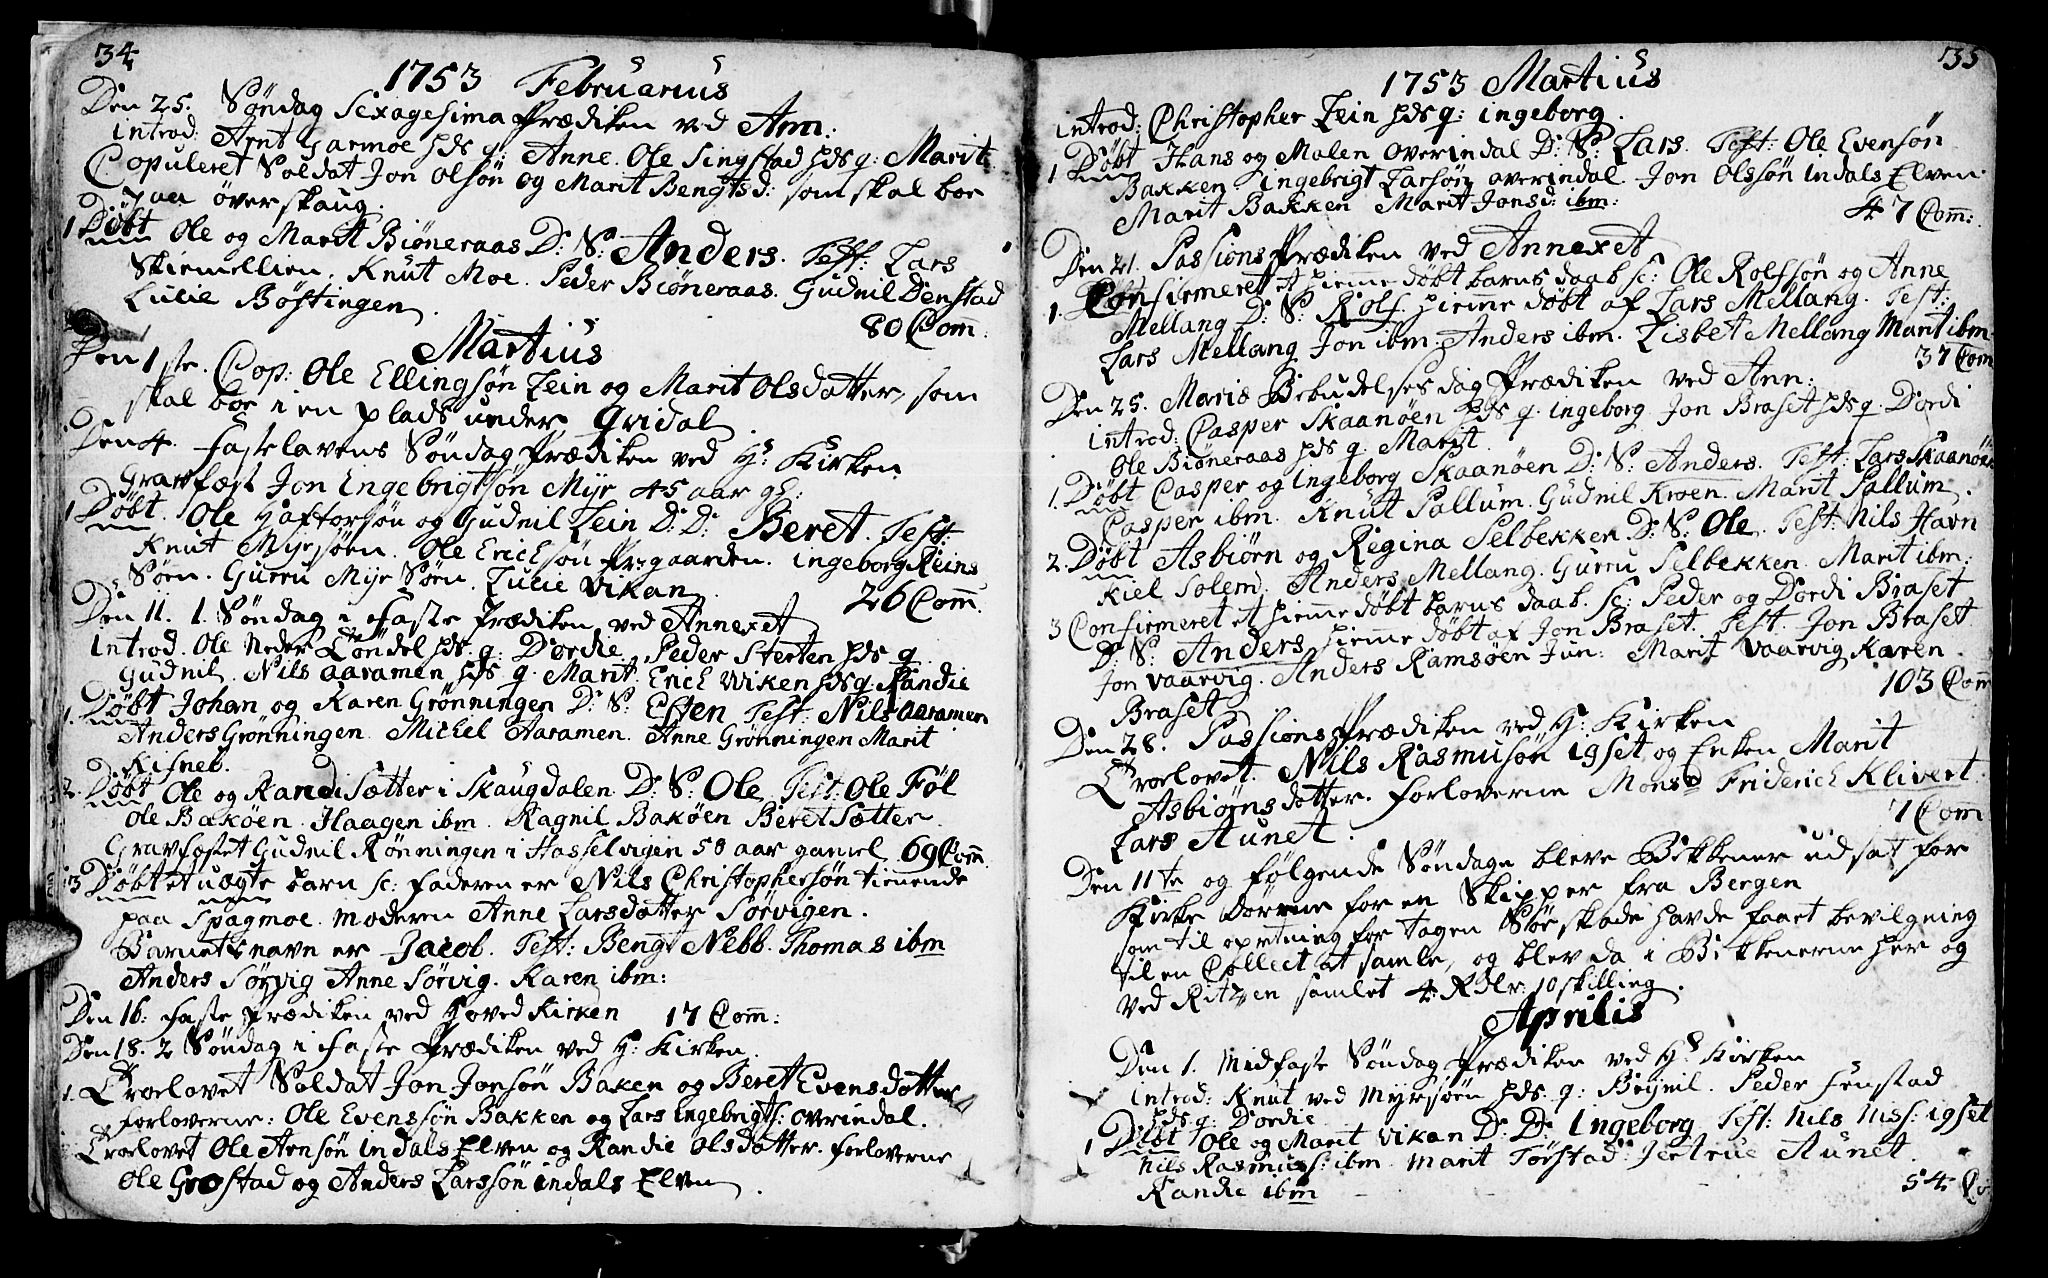 34
1753 Februarius
Den 25. Søndag Sexagesima Prædiken ved Ann:
introd: Arnt Garmoe hds q: Anne. Ole Singstad hds q: Marit
Copuleret Soldat Jon Olsøn og Marit Bengtsd: som skal boe
paa överskaug.
1 Döbt Ole og Marit Biöneraas D: S: Anders. Test: Lars
Skiemellien. Knut Moe. Peder Biöneraas. Gudnil Denstad
Lucie Böstingen.
80 Com̄.
Martius
Den 1ste. Cop: Ole Ellingsön Lein og Marit Olsdatter, som
skal boe i en plads under Qvidal
Den 4. Fastelavens Söndag Prædiken ved H: Kirken
Gravfæst Jon Engebrigtsön Myr 45 aar gl:
1 Döbt. Ole Haftorsön og Gudnil Lein D: D: Beret. Test:
Knut Myrsöen. Ole Ericksön Prgaarden. ingeborg Reins
Sörn. Gurru Myr Sörn. Lucie Vikan.
26 Com̄.
Den 11. 1. Söndag i Faste Prædiken ved Annexet
Introd. Ole Neder Löndel hds. q: Dordie Peder Sterten hds q
Gudnil. Nils Aaramen hds q. Marit. Erich Viken hds q. Randie
1. Döbt Johan og Karen Grönningen D: S: Esten Test: Nils Aaramen
Anders Grönningen. Michel Aaramen. Anne Grönningen Marit
Risneb.
2. Döbt Ole og Randi Sætter i Skaugdalen D: S: Ole Test: Ole Föl
Ole Baköen. Haagen ibm. Ragnil Baköen Beret Sætter.
Gravfæstet Gudnil Rönningen i Hasselvigen 58 aar gamel 69 Com̄.
3 Döbt et uægte barn sc: faderen er Nils Christophersön tienende
paa Spagmoe. Moderen Anne Larsdatter Sörvigen.
Barnets navn er Jacob. Test: Bengt Nebb. Thomas ibm
Anders Sörvig Anne Sörvig. Karen ibm:
Den 16: Faste Prædiken ved Hoved Kirken 17 Com̄:
Den 18. 2 Söndag i Faste Prædiken ved H: Kirken.
1. Trorlovet Soldat Jon Jonsön Baken og Beret Evensdatter
forloverne: Ole Evenssön Bakken og Lars Ingebrigts: overindal.
Trorlovet Ole Arnsön Indals Elven og Randie Olsdatter. forloverne
Ole Grostad og Anders Larssön indals Elven.
35
1753 Martius
introd: Christopher Lein hds q: ingeborg.
1 Döbt Hans og Malen Overindal D: S: Lars. Test: Ole Evensön
Bakken ingebrigt Larsön overindal. Jon Olssön Indals Elven.
Marit Bakken Marit Jonsd: ibm:
47 Com̄:
Den 21. Passions Prædiken ved Annexet
1. Confirmeret et hiem̄edöbt barns daab sc: Ole Rolfsön og Anne
Mellang D: S: Rolf. hiem̄e döbt af Lars Mellang. Test:
Lars Mellang Jon ibm. Anders ibm. Lisbet Mellang Marit ibm.
37 Com
Den 25. Mariæ Bebudelses dag Prædiken ved Ann:
introd: Casper Skaanöen hds q. ingeborg. Jon Braset hds q. Dordi
Ole Biöneraas hds q Marit.
1. Döbt Casper og Ingeborg Skaanöen D: S: Anders. Test: Lars Skaanöen
Casper ibm. Knut Sallum. Gudnil Kroen. Marit Sallum.
2. Döbt Asbiörn og Regina Selbekken D: S: Ole. Test: Nils Havn
Kiel Solem. Anders Mellang. Gurru Selbekken. Marit ibm:
3 Confirmeret et hiem̄e döbt barns daab. sc: Peder og Dordi Braset
D: S: Anders hiem̄e döbt af Jon Braset. Test. Jon Braset
Jon Vaarvig. Anders Ramsöen Jun: Marit Vaarvig Karen
Braset
103 Com̄
Den 28. Passions Prædiken ved H: Kirken
Trorlovet. Nils Rasmusön igset og Enken Marit
Asbiörns datter. Forloverne Monsr Friderich Klivert.
Lars Aunet.
7 Com
Den 11te og fölgende Söndage bleve Bekkener udsat for
Kirke Dörrene for en Skipper fra Bergen
om til opretning for tagen Söeskade havde faaet bevilgning
til en Collect at samle, og blev da i Bekkenerne her og
ved Ritzen samlet 4 Rdlr: 10 skilling.
Aprilis
Den 1. Midfaste Söndag Prædiken ved H: Kirken
introd: Knut ved Myrsöen hds. q: Brynil. Peder Fenstad
hds q: Dordie
1 Döbt Ole og Marit Vikan D: D: Ingeborg Test: Nils Niss: igset
Nils Rasmuss: ibm. Marit Törstad: Jertrue Aunet.
Randie ibm
54 C